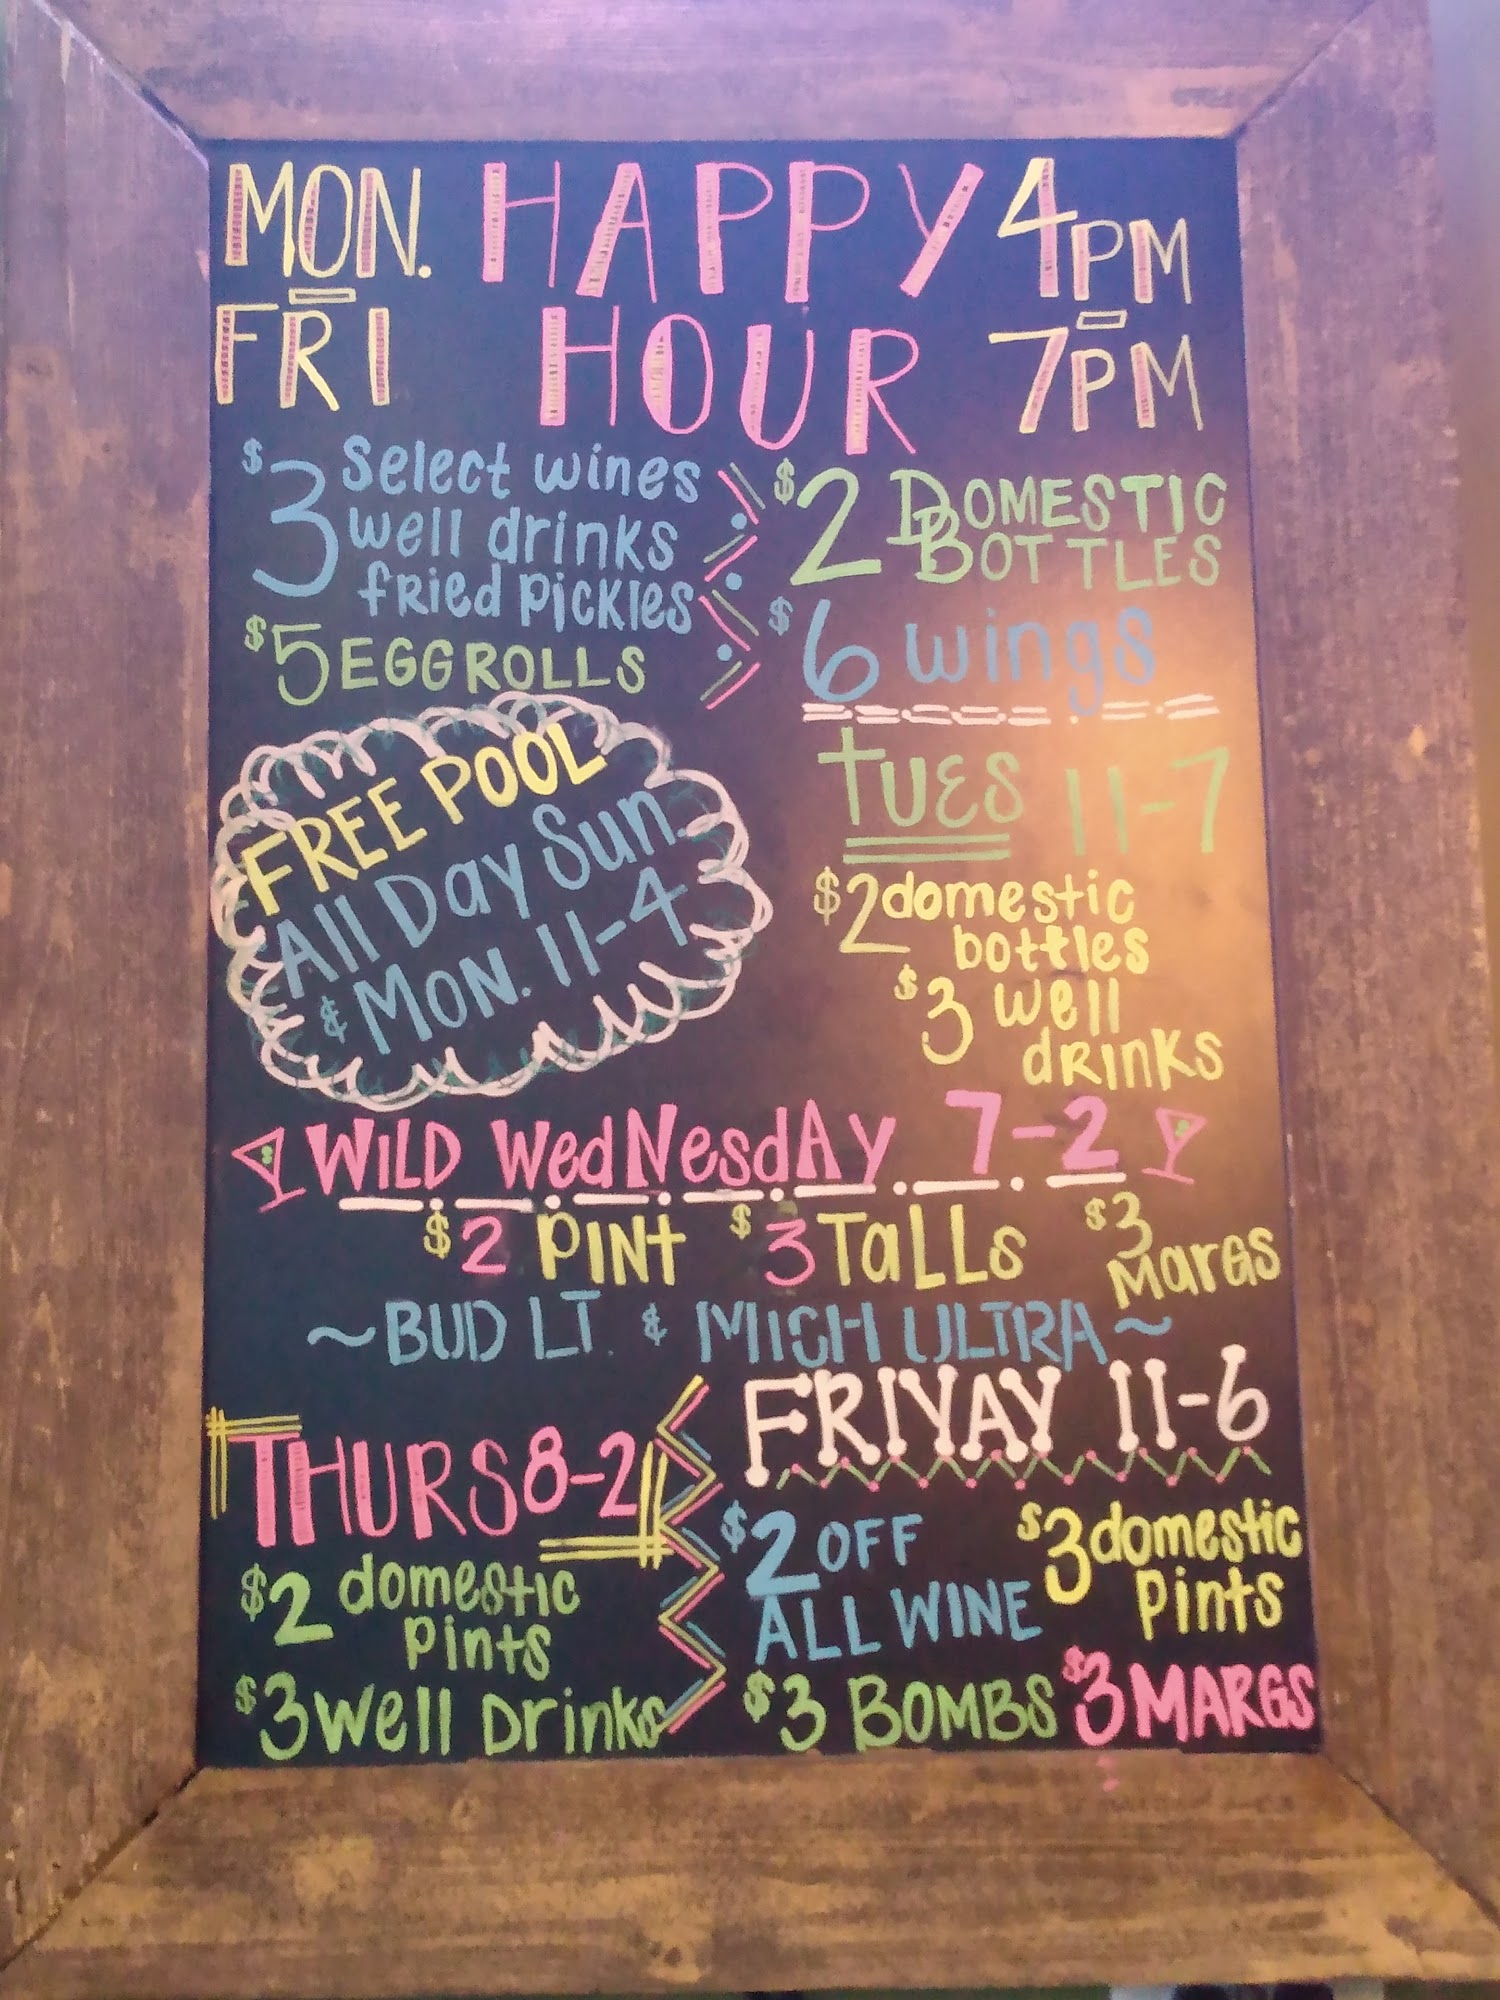 MON. HAPPY 4PM
-
FRI HOUR 7PM
$3 select wines
well drinks
fried pickles
$5 EGGROLLS
$2 DOMESTIC
BOTTLES
$6 wings
FREE POOL
All Day Sun.
& MON. 11-4
TUES 11-7
$2 domestic
bottles
$3 well
drinks
WILD WedNesdAy 7-2
$2 PINT $3 TaLLs $3 MarGs
~BUD LT. & MICH ULTRA~
THURS 8-2
$2 domestic
pints
$3 well Drinks
FRIYAY 11-6
$2 OFF
ALL WINE
$3 domestic
pints
$3 BOMBS $3 MARGS